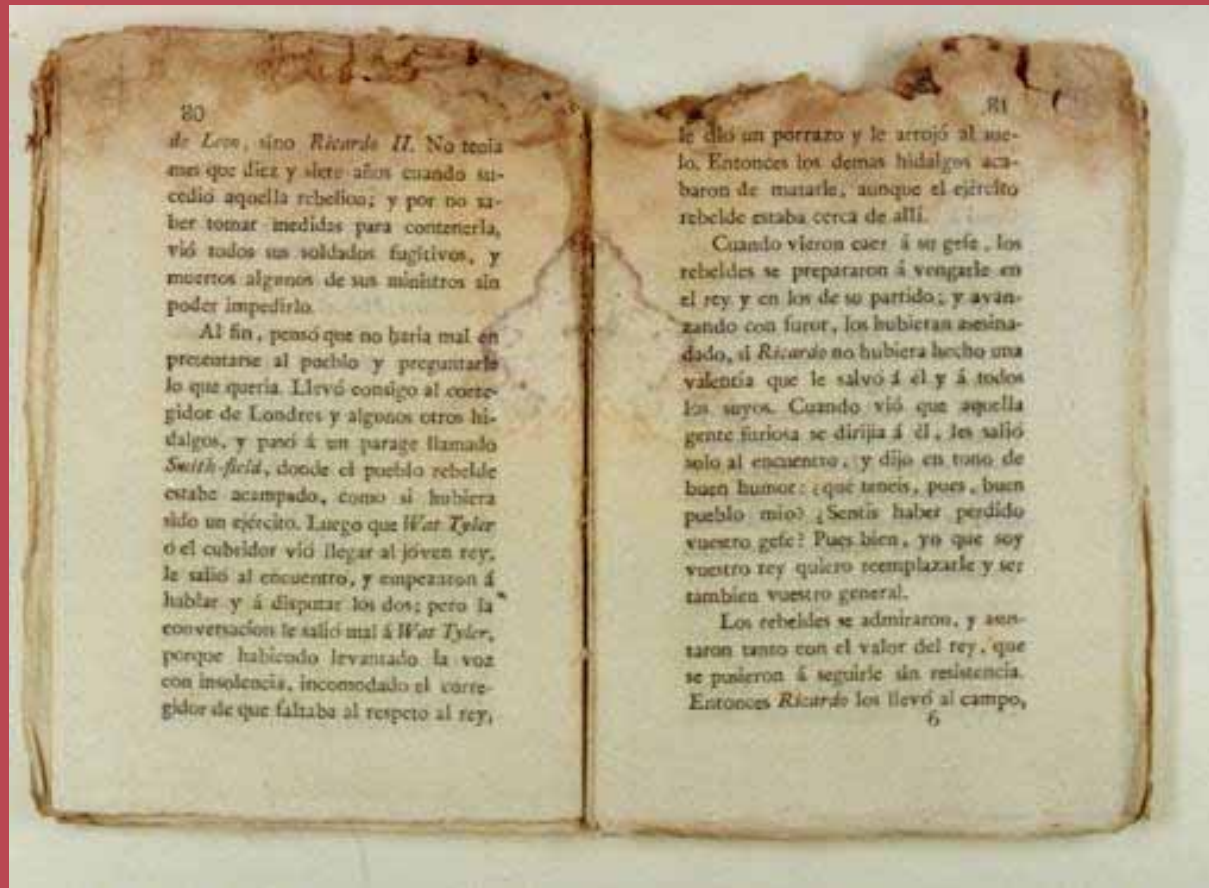 80
de Leon, sino Ricardo II. No tenia
mas que diez y siete años cuando su-
cedió aquella rebelion; y por no sa-
ber tomar medidas para contenerla,
vió todos sus soldados fugitivos, y
muertos algunos de sus ministros sin
poder impedirlo.
Al fin, pensó que no haria mal en
presentarse al pueblo y preguntarle
lo que queria. Llevó consigo al corre-
gidor de Londres y algunos otros hi-
dalgos, y pasó á un parage llamado
Smith-field, donde el pueblo rebelde
estaba acampado, como si hubiera
sido un ejército. Luego que Wat Tyler
ó el cubridor vió llegar al jóven rey,
le salió al encuentro, y empezaron á
hablar y á disputar los dos; pero la
conversacion le salió mal á Wat Tyler,
porque habiendo levantado la voz
con insolencia, incomodado el corre-
gidor de que faltaba al respeto al rey,
81
le dió un porrazo y le arrojó al sue-
lo. Entonces los demas hidalgos aca-
baron de matarle, aunque el ejército
rebelde estaba cerca de allí.
Cuando vieron caer á su gefe, los
rebeldes se prepararon á vengarle en
el rey y en los de su partido; y avan-
zando con furor, los hubieran asesina-
dado, si Ricardo no hubiera hecho una
valentía que le salvó á él y á todos
los suyos. Cuando vió que aquella
gente furiosa se dirijia á él, les salió
solo al encuentro, y dijo en tono de
buen humor: ¿qué teneis, pues, buen
pueblo mio? ¿Sentis haber perdido
vuestro gefe? Pues bien, yo que soy
vuestro rey quiero reemplazarle y ser
tambien vuestro general.
Los rebeldes se admiraron, y asus-
taron tanto con el valor del rey, que
se pusieron á seguirle sin resistencia.
Entonces Ricardo los llevó al campo,
6